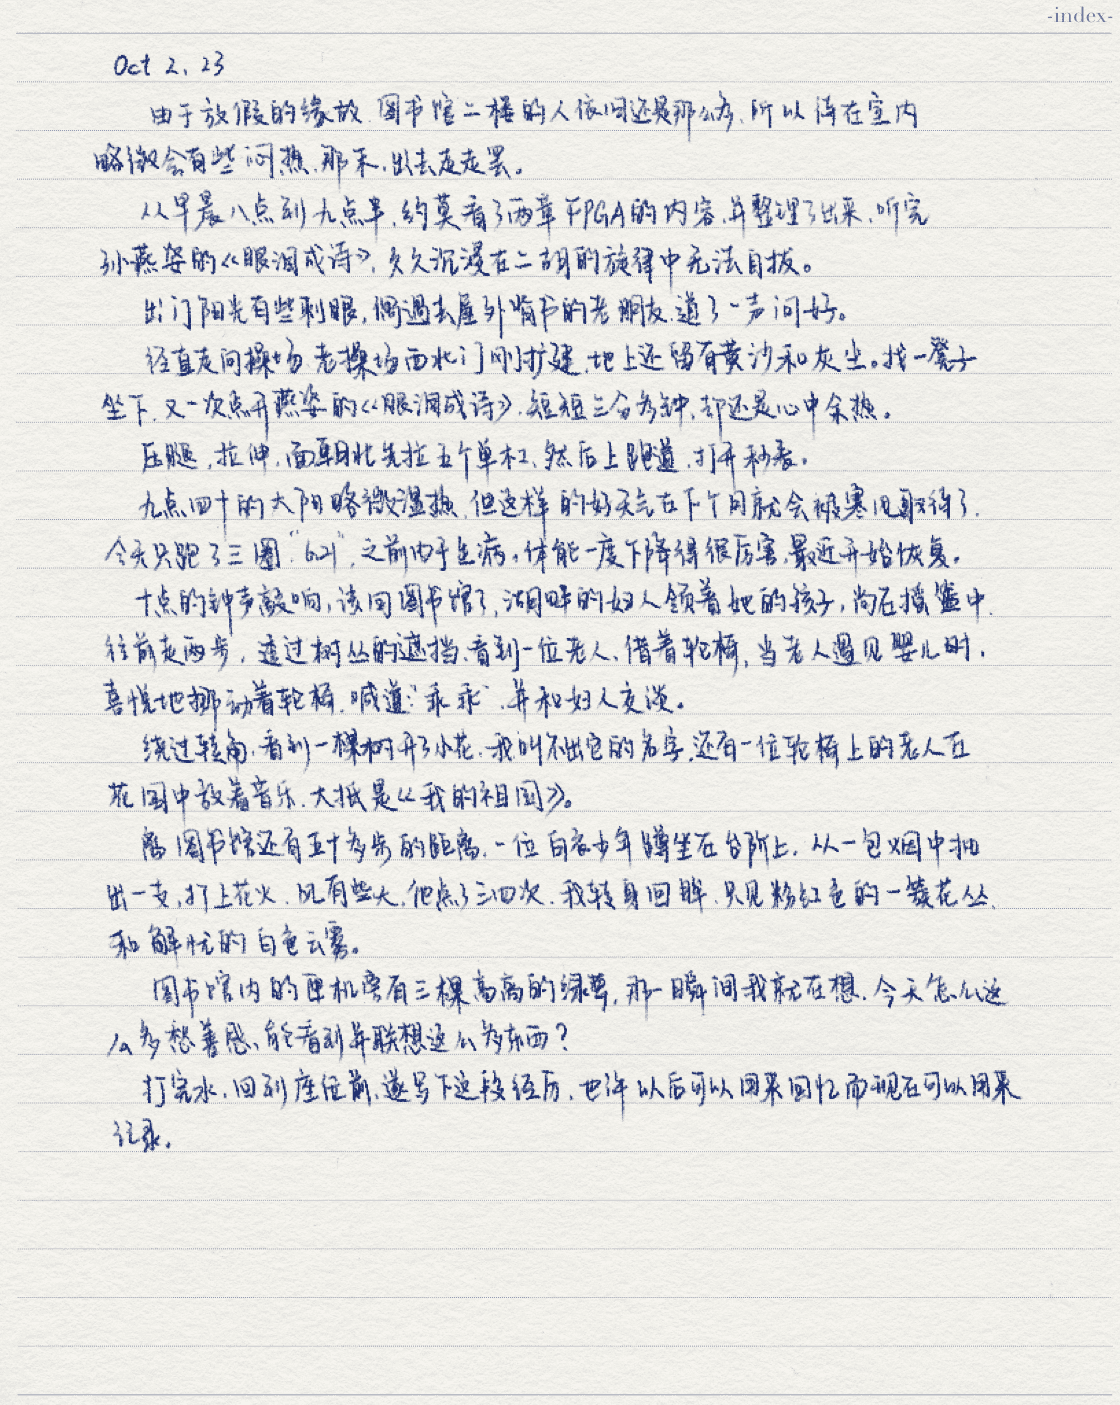 -index-
Oct 2, 23
由于放假的缘故,图书馆二楼的人依旧还是那么多,所以待在室内
略微会有些闷热,那末,出去走走罢。
从早晨八点到九点半,约莫看了两章FPGA的内容,并整理了出来,听完
孙燕姿的《眼泪成诗》,久久沉浸在二胡的旋律中无法自拔。
出门阳光有些刺眼,偶遇去屋外背书的老朋友,道了一声问好。
径直走向操场,老操场西北门刚扩建,地上还留有黄沙和灰尘。找一凳子
坐下,又一次点开燕姿的《眼泪成诗》,短短三分多钟,却还是心中余热。
压腿,拉伸,面朝北先拉五个单杠,然后上跑道,打开秒表。
九点四十的太阳略微温热,但这样的好天气在下个月就会被寒风取代了,
今天只跑了三圈"6.21",之前由于生病,体能一度下降得很厉害,最近开始恢复。
十点的钟声敲响,该回图书馆了,湖畔的妇人领着她的孩子,尚在摇篮中,
往前走两步,透过树丛的遮挡,看到一位老人,借着轮椅,当老人遇见婴儿时,
喜悦地挪动着轮椅,喊道:"乖乖",并和妇人交谈。
绕过转角,看到一棵树开了小花,我叫不出它的名字,还有一位轮椅上的老人在
花园中放着音乐,大抵是《我的祖国》。
离图书馆还有五十多步的距离,一位白衣少年蹲坐在台阶上,从一包烟中抽
出一支,打上花火,风有些大,他点了三四次,我转身回眸,只见粉红色的一簇花丛,
和解忧的白色云雾。
图书馆内的匣机旁有三棵高高的绿萝,那一瞬间我就在想,今天怎么这
么多愁善感,能看到并联想这么多东西?
打完水,回到座位前,遂写下这段经历,也许以后可以用来回忆而现在可以用来
记录。